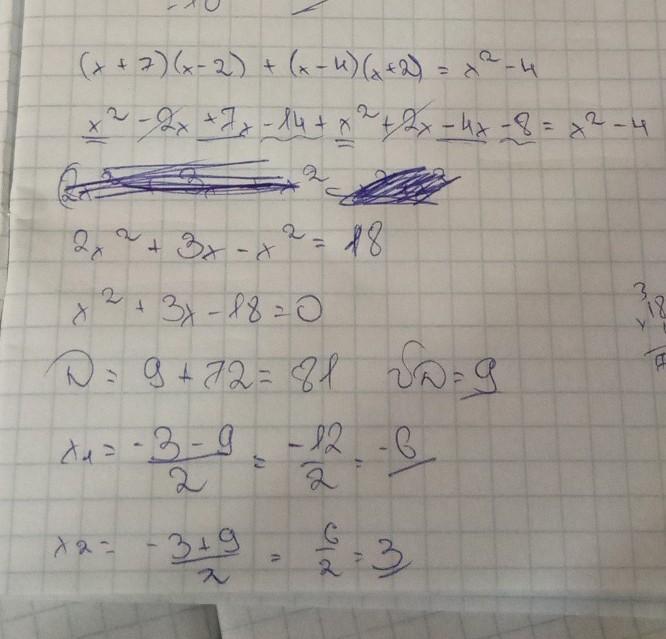 (x + 7)(x - 2) + (x - 4)(x + 2) = x² - 4
x² - 2x + 7x - 14 + x² + 2x - 4x - 8 = x² - 4
2x² + 3x - x² = 18
x² + 3x - 18 = 0
D = 9 + 72 = 81 √D = 9
x₁ = \frac{-3 - 9}{2} = \frac{-12}{2} = -6
x₂ = \frac{-3 + 9}{2} = \frac{6}{2} = 3